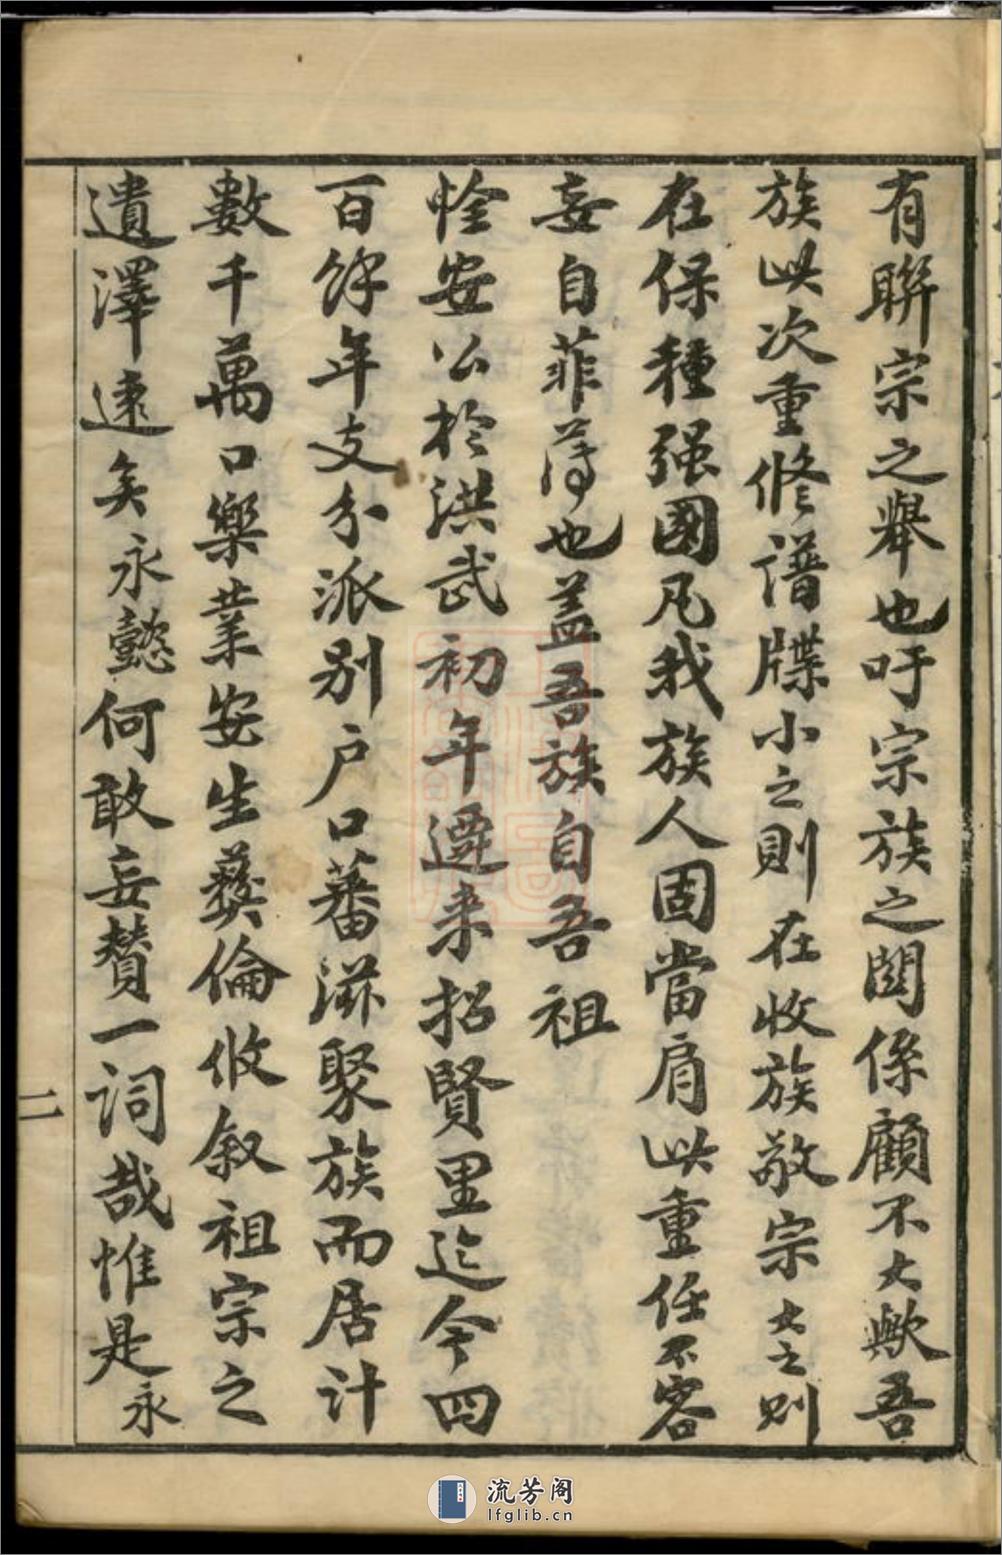 有聯宗之舉也吁宗族之關係顧不大歟吾
族此次重修譜牒小之則在收族敬宗大之則
在保種强國凡我族人固當肩此重任不容
妄自菲薄也蓋吾族自吾祖
恮安公於洪武初年遷来招賢里迄今四
百餘年支分派别户口蕃滋聚族而居計
數千萬口樂業安生彝倫攸叙祖宗之
遺澤遠矣永懿何敢妄贊一詞哉惟是永
二
流芳阁
lfglib.cn